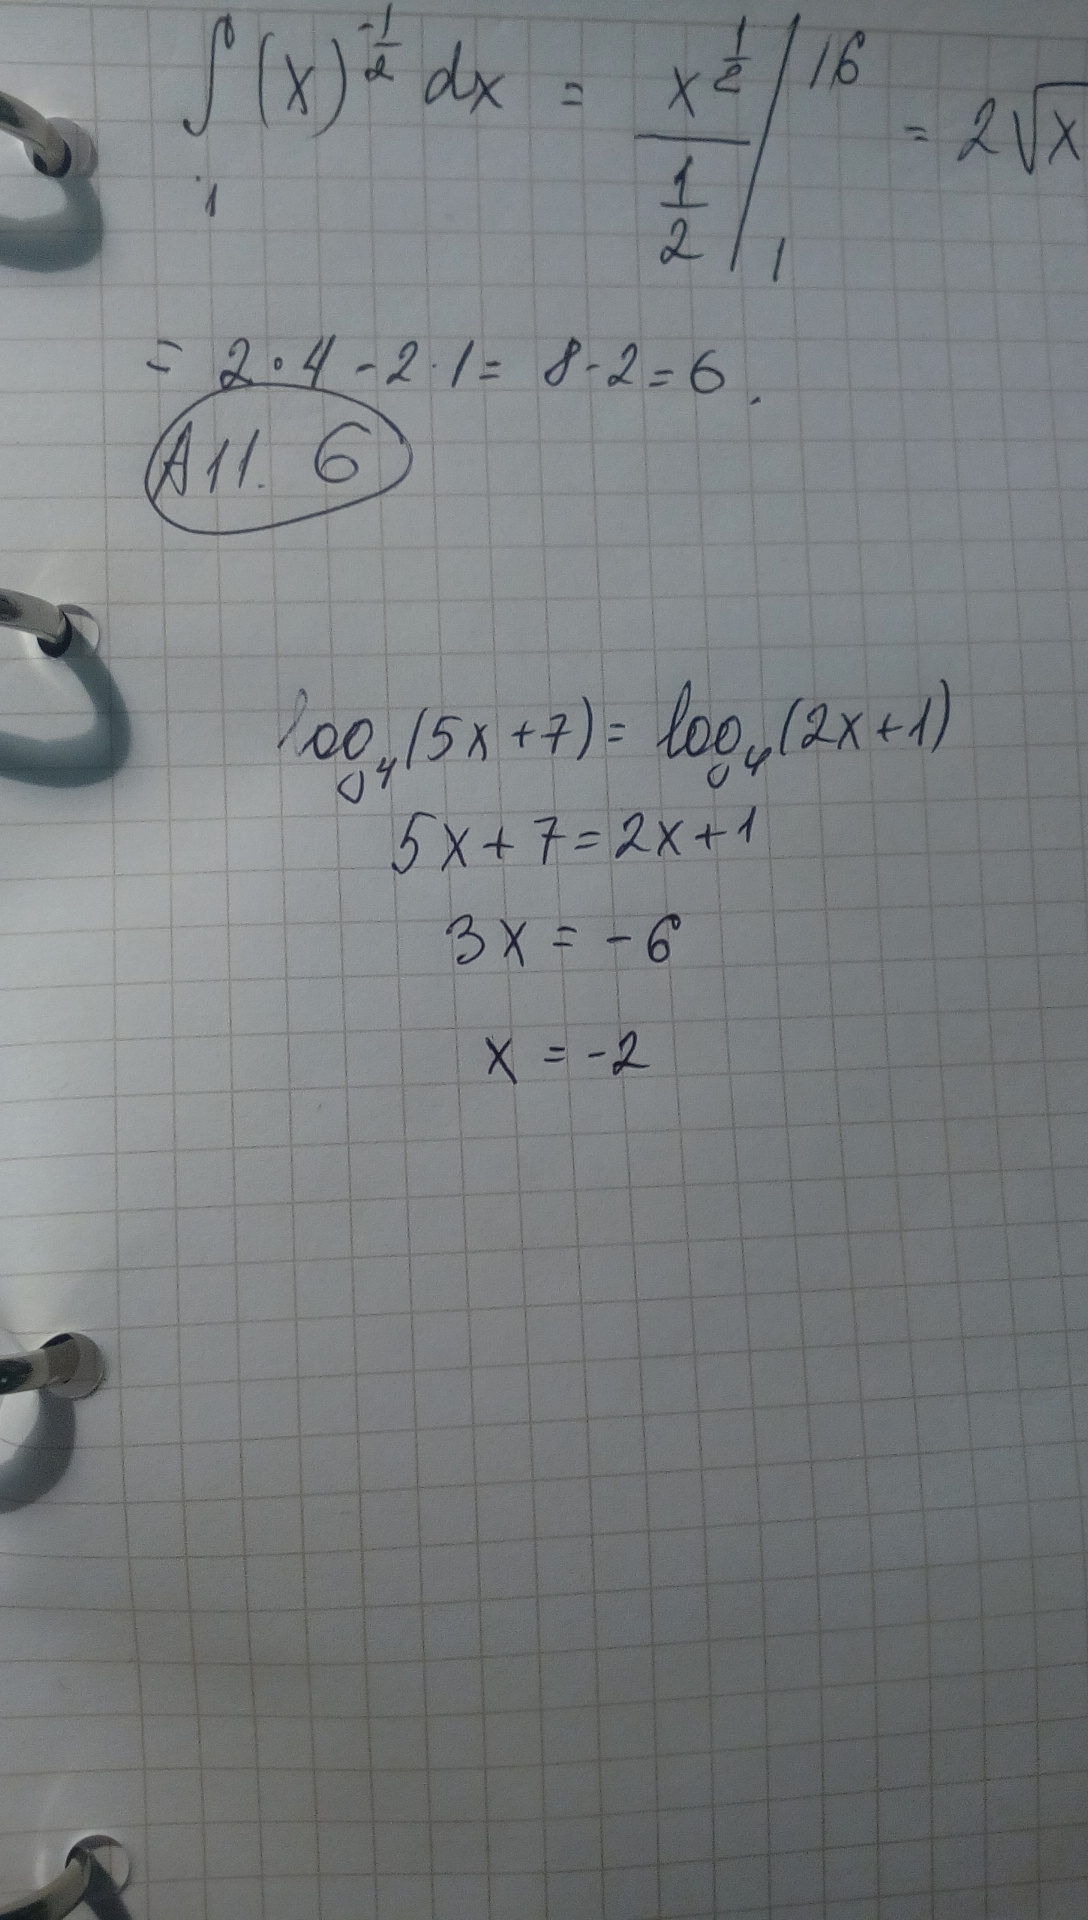 ∫₁ (x)^(-1/2) dx = x^(1/2) / (1/2) |₁^16 = 2√x
= 2·4 - 2·1 = 8 - 2 = 6.
A11. 6
log₄(5x+7) = log₄(2x+1)
5x+7=2x+1
3x = -6
x = -2